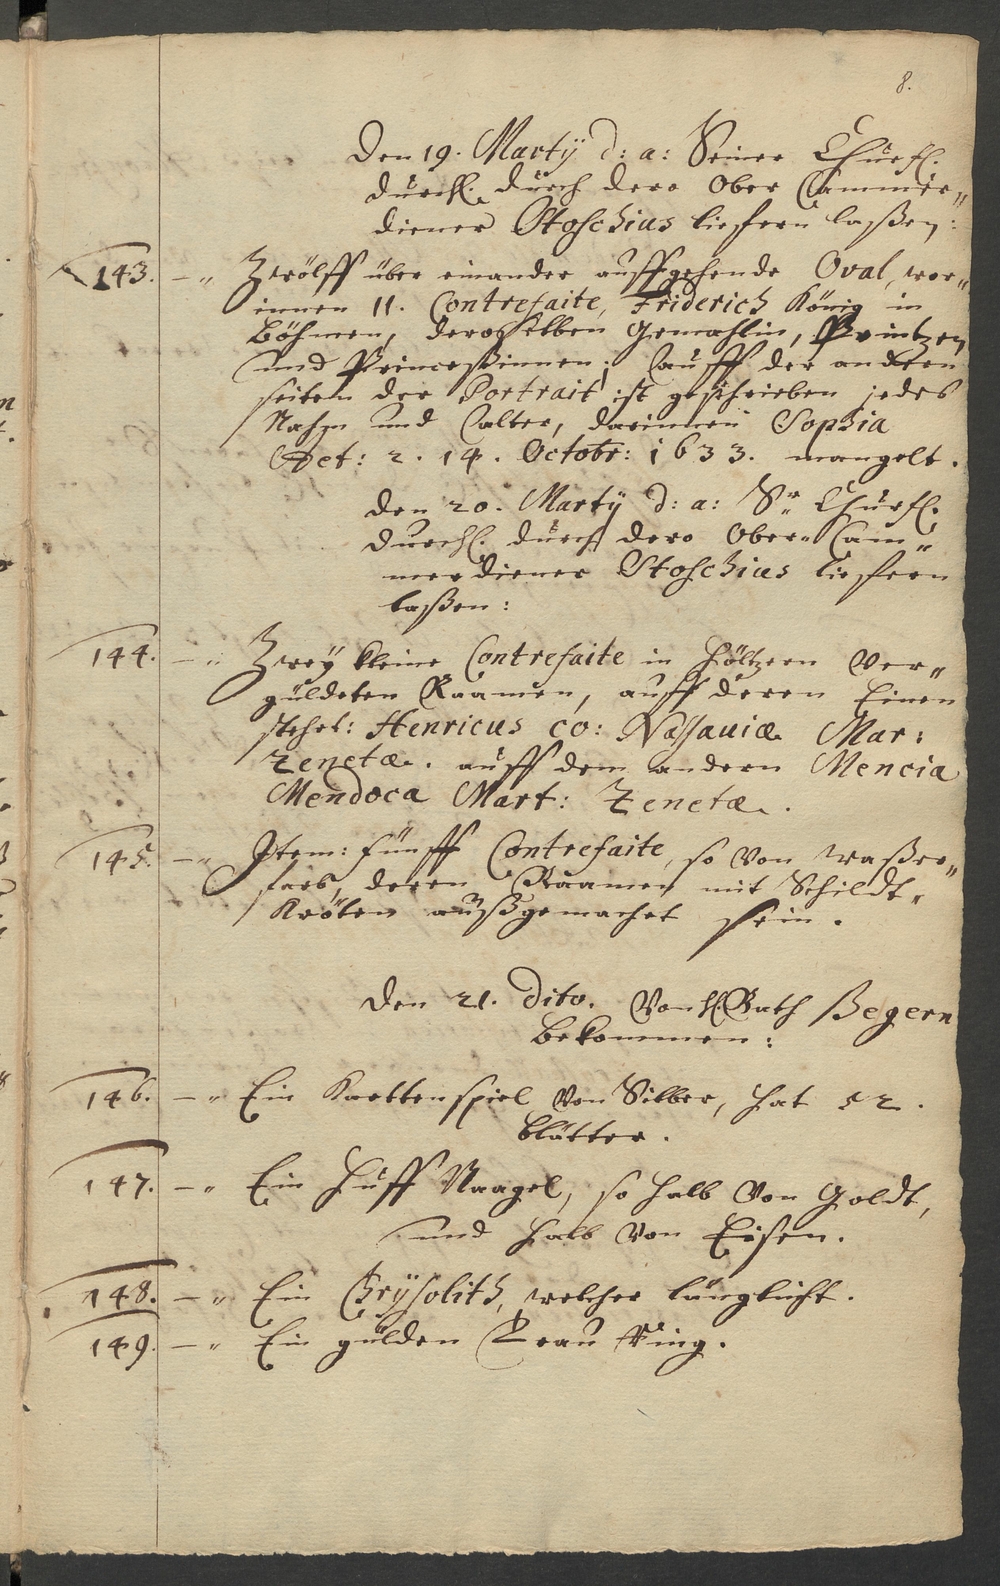 8.
Den 19. Martÿ d: a: Seiner Churfl.
Durchl. durch dero Ober Cammer„
diener Stoschius liefern laßen:
143. —„ Zwölff über einander auffgehende Oval, wor„
innen 11. Contrefaite, Friderich König in
Böhmen, deroselben Gemahlin, Printzen
und Princeßinnen; auff der andern
seiten der Portrait ist geschrieben jedes
Nahm und alter, darinnen Sophia
Aet: 2. 14. Octobr: 1633. mangelt.
Den 20. Martÿ d: a: Sr. Churfl.
Durchl. durch dero Ober-Cam„
merdiener Stoschius liefern
laßen:
144. —„ Zweÿ kleine Contrefaite in höltzern ver„
güldeten Raamen, auff deren Einen
stehet: Henricus co: Nassauiæ Mar:
Zenetæ. auff dem andern Mencia
Mendoca Mart: Zenetæ.
145. —„ Item: fünff Contrefaite, so von waßer„
farb, deren Raamen mit Schildt„
Kröten außgemachet sein.
Den 21. Dito. Von H. Rath Begern
bekommen:
146. —„ Ein Kartenspiel von Silber, hat 52.
blätter.
147. —„ Ein Huff Naagel, so halb von Goldt,
und halb von Eisen.
148. —„ Ein Chrÿsolith, welcher länglicht.
149. —„ Ein gülden Trau Ring.